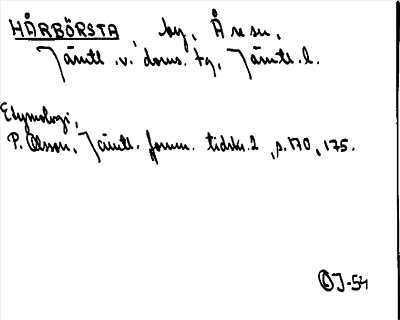 HÅRBÖRSTA, by, Åre sn,
Jämtl. v. doms. tg, Jämtl. l.
Etymologi,
P. Olsson, Jämtl. fornm. tidskr. 2, s. 170, 175.
OJ-54